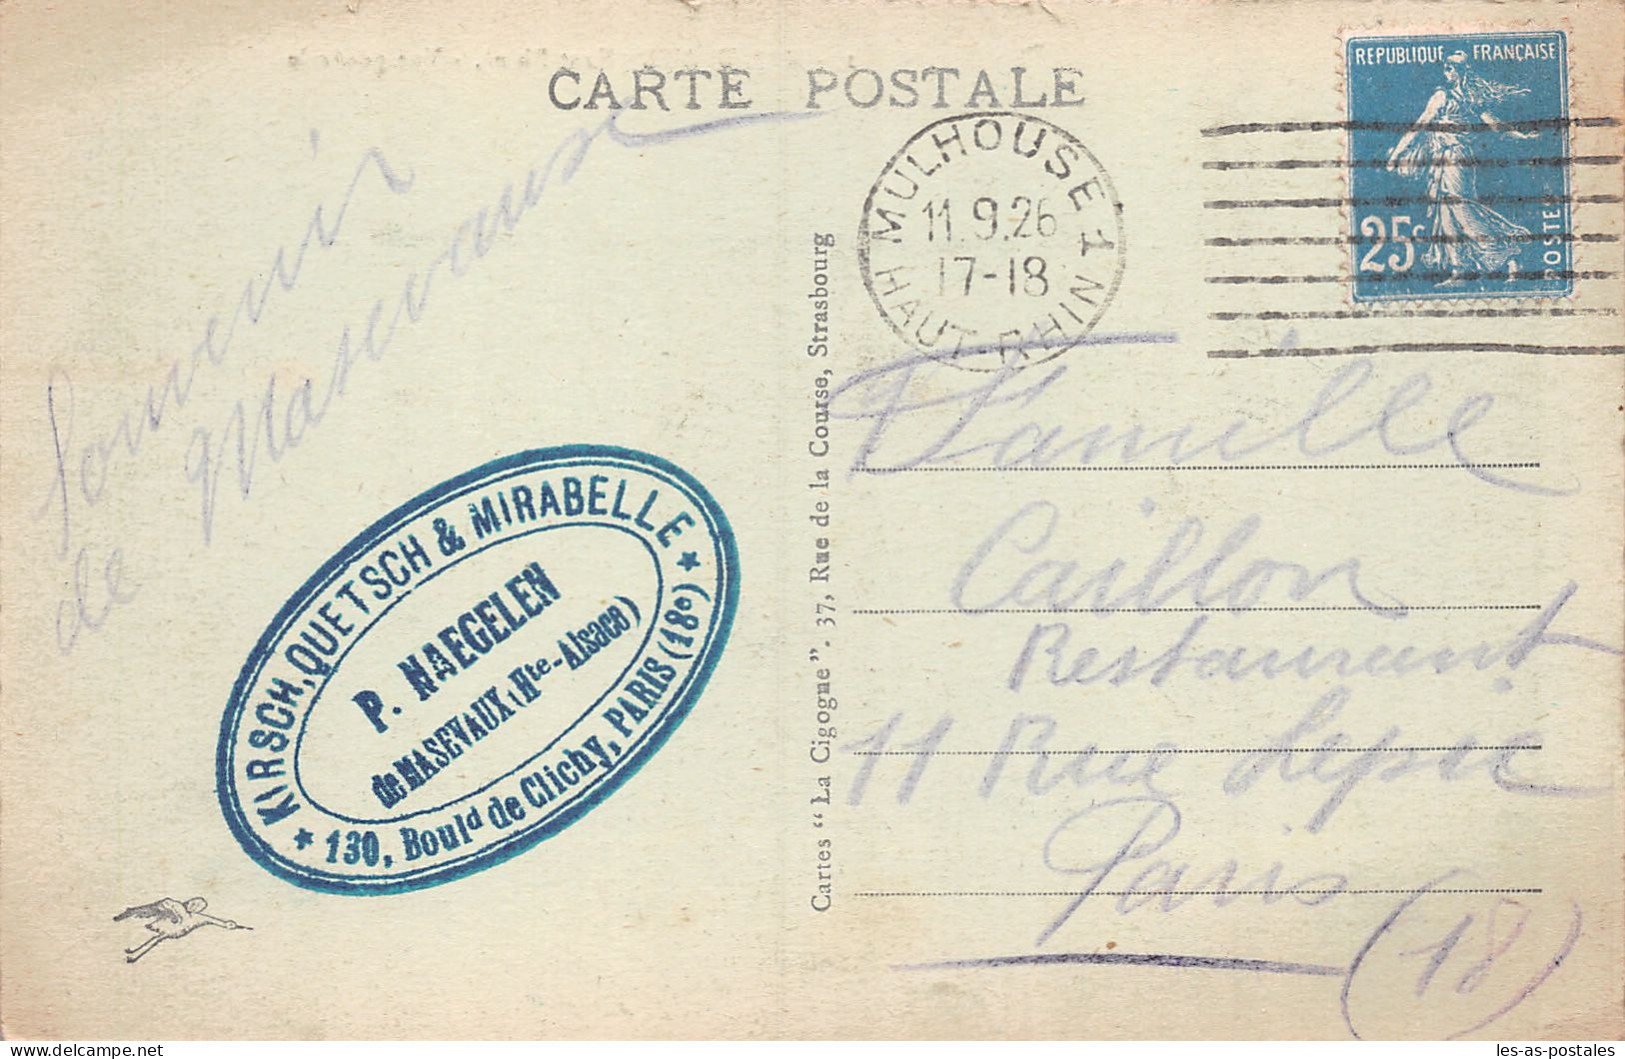 CARTE POSTALE
REPUBLIQUE FRANÇAISE
25c
POSTES
MULHOUSE 1
11.9.26
17-18
HAUT-RHIN
Souvenir
de Masevaux
KIRSCH, QUETSCH & MIRABELLE
P. NAEGELEN
de MASEVAUX (Hte-Alsace)
130, Bould de Clichy, PARIS (18e)
Cartes "La Cigogne". 37, Rue de la Course, Strasbourg
Famille
Caillon
Restaurant
11 Rue Lepic
Paris
(18)
les-as-postales